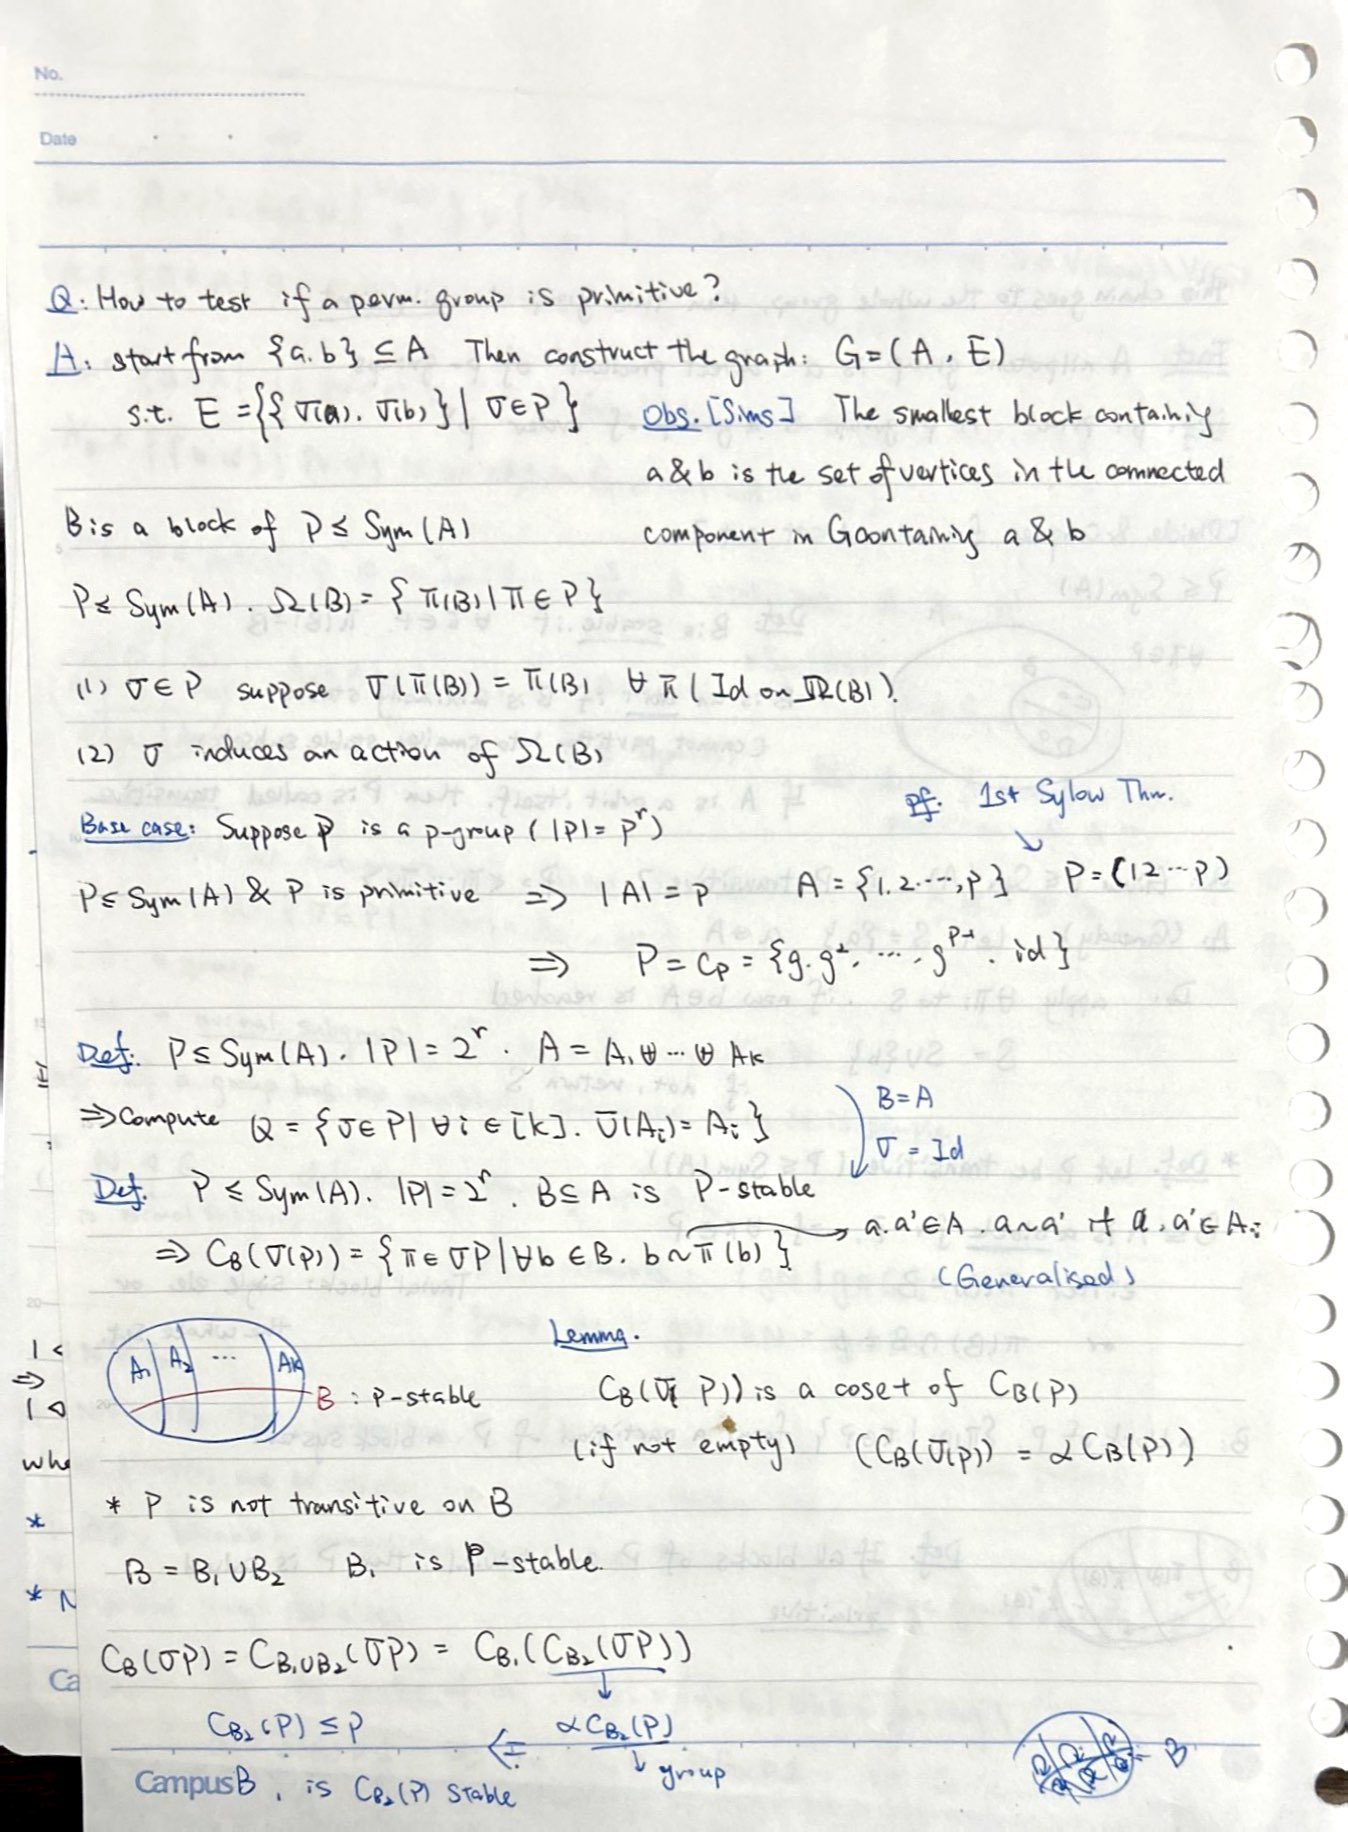 No.
Date
Q: How to test if a perm. group is primitive?
A: start from {a.b} ⊆ A Then construct the graph: G=(A, E)
s.t. E = {{σ(a). σ(b)} | σ∈P}
Obs. [Sims] The smallest block containing
a & b is the set of vertices in the connected
component in G containing a & b
B is a block of P ≤ Sym(A)
P ≤ Sym(A). Ω(B) = {π(B) | π ∈ P}
(1) σ∈P suppose σ(π(B)) = π(B) ∀ π (Id on Ω(B)).
(2) σ induces an action of Ω(B)
Pf: 1st Sylow Thm.
↓
Base case: Suppose P is a p-group (|P| = p^r)
P ≤ Sym(A) & P is primitive ⇒ |A| = p A = {1.2.⋯,p} P = (12⋯p)
⇒ P = Cp = {g. g². ⋯. g^{p-1}. id}
Def: P ≤ Sym(A). |P| = 2^r. A = A₁ ⊎ ⋯ ⊎ Ak
⇒ Compute Q = {σ∈P | ∀i ∈ [k]. σ(Ai) = Ai}
B = A
σ = Id
Def. P ≤ Sym(A). |P| = 2^r. B ⊆ A is P-stable
⇒ C_B(σ(P)) = {π ∈ σP | ∀b ∈ B. b ~ π(b)} → a.a' ∈ A. a~a' if a.a' ∈ Ai
(Generalised)
A₁ A₂ ⋯ Ak
B : P-stable
Lemma.
C_B(σ(P)) is a coset of C_B(P)
(if not empty) (C_B(σ(P)) = α C_B(P))
* P is not transitive on B
B = B₁ ∪ B₂ B₁ is P-stable.
C_B(σP) = C_{B₁∪B₂}(σP) = C_{B₁}(C_{B₂}(σP))
↓
C_{B₂}(P) ≤ P ⇐ α C_{B₂}(P)
↓ group
Campus B₁ is C_{B₂}(P) stable
B
1 <
⇒
1 ◁
whe
*
* N
Ca